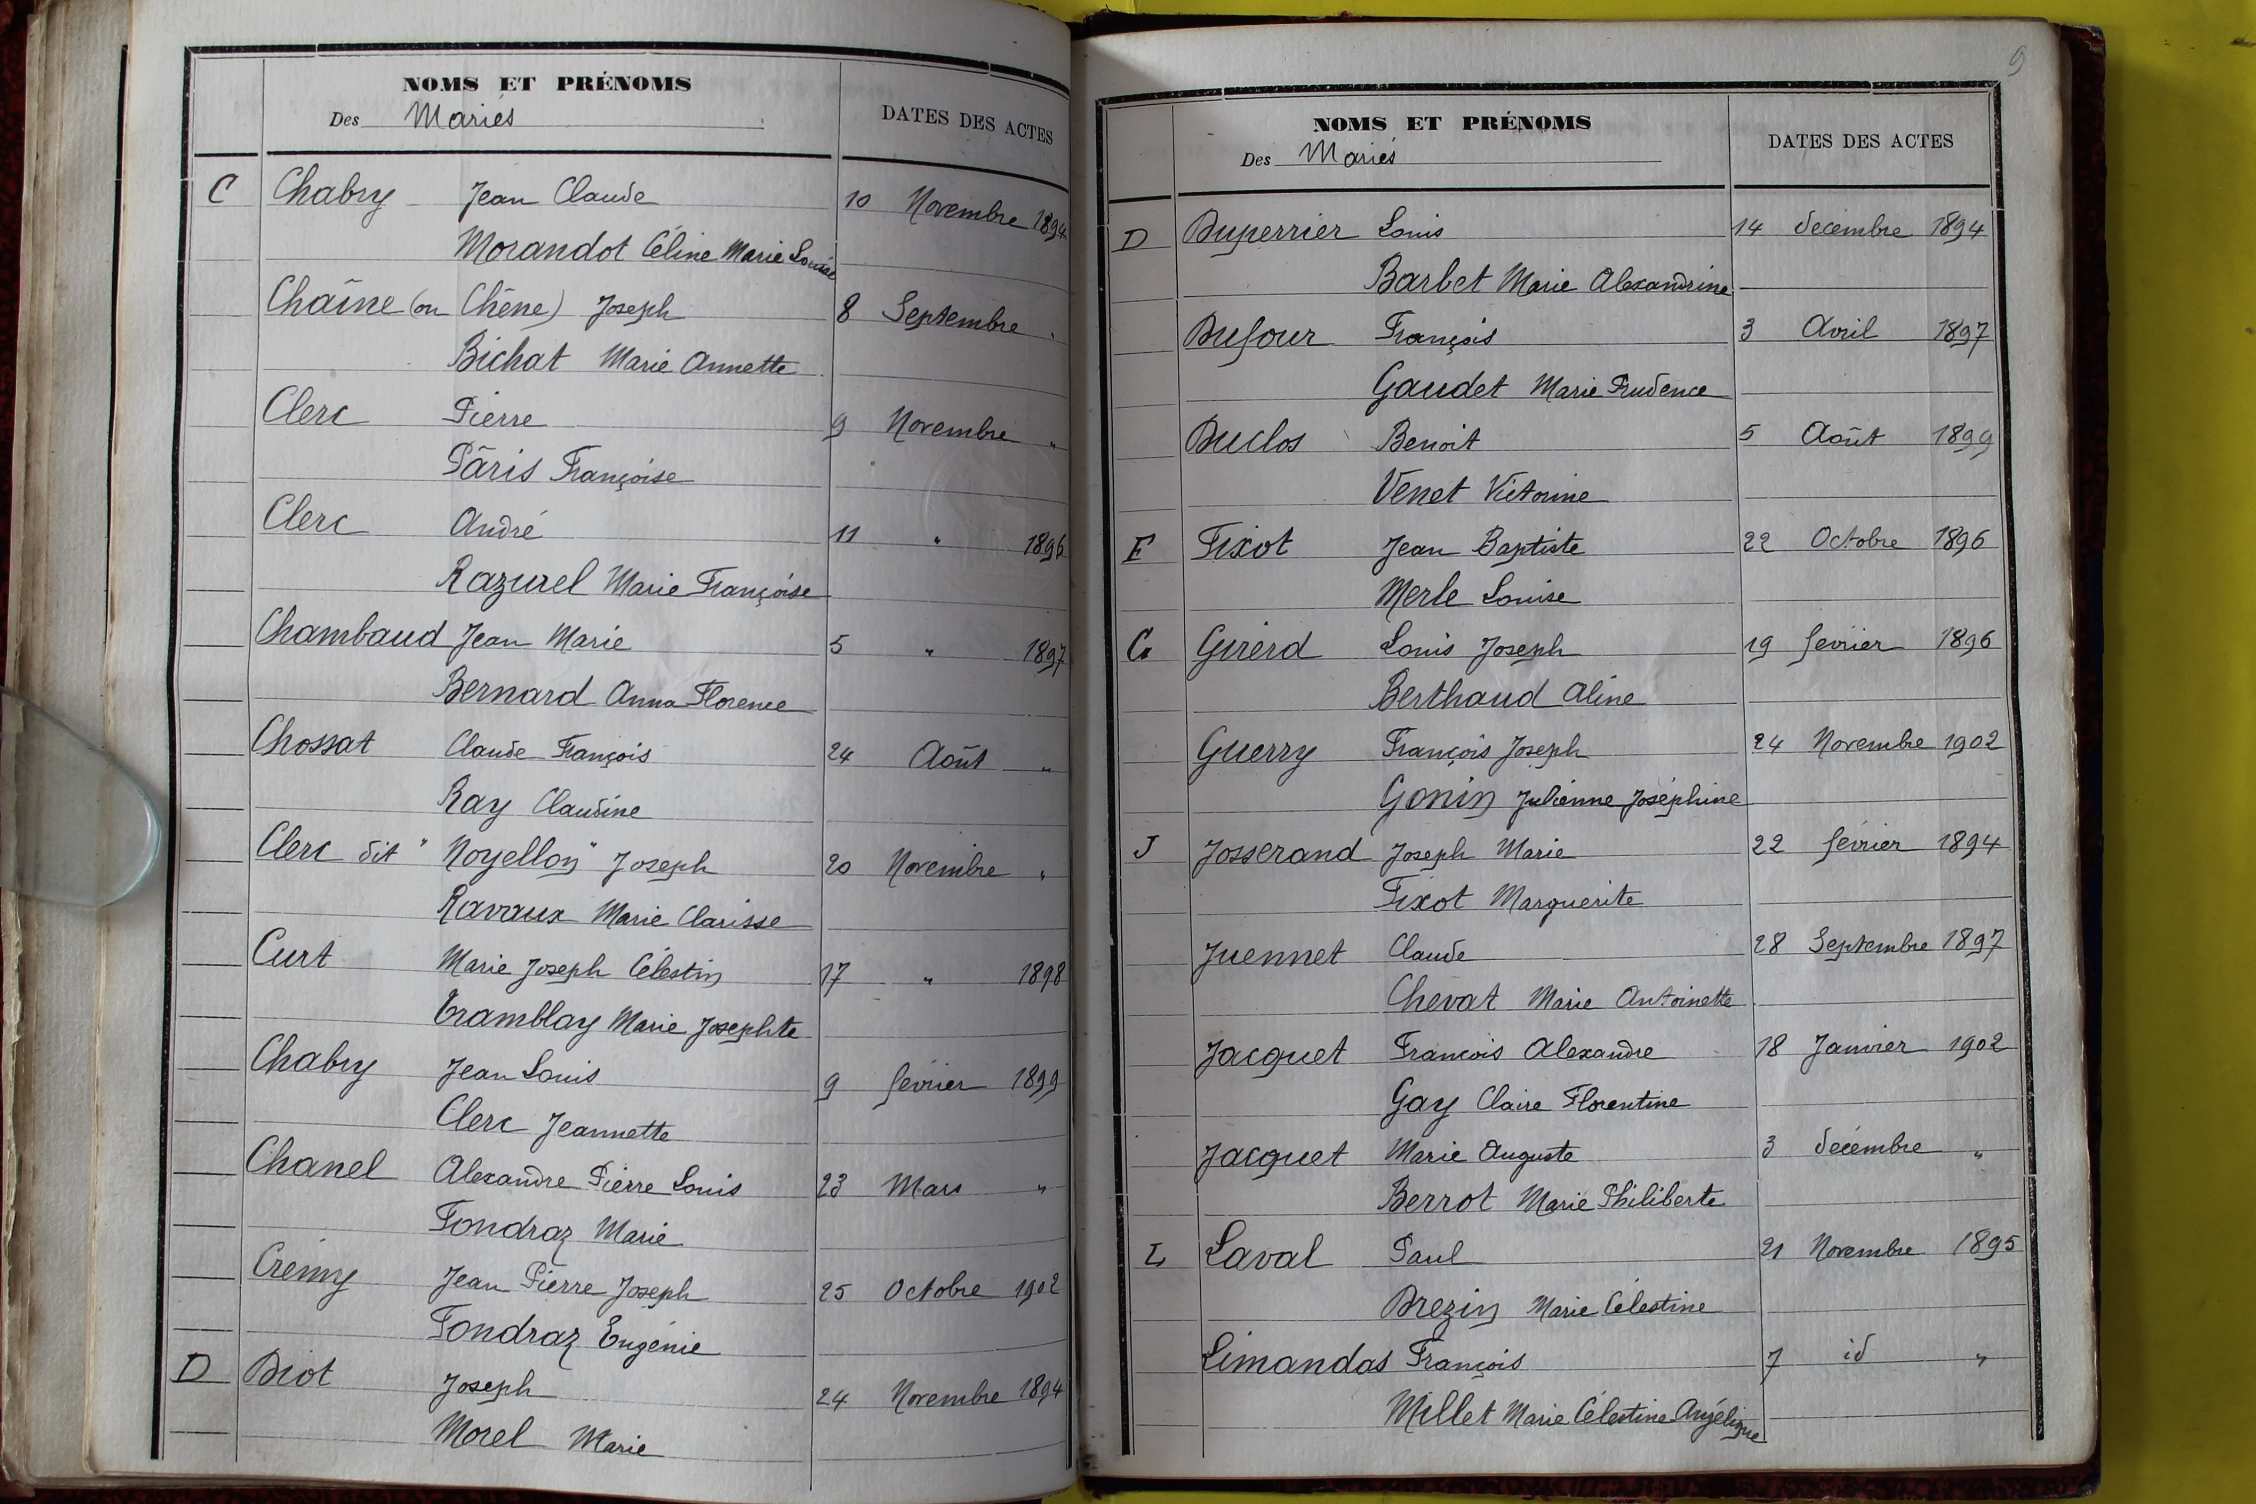 NOMS ET PRÉNOMS
Des Mariés
DATES DES ACTES
C Chabry Jean Claude 10 Novembre 1894
Morandot Céline Marie Louise
Chaîne (ou Chêne) Joseph 8 Septembre "
Bichat Marie Annette
Clerc Pierre 9 Novembre "
Pâris Françoise
Clerc André 11 " 1896
Razurel Marie Françoise
Chambaud Jean Marie 5 " 1897
Bernard Anna Florence
Chossat Claude François 24 Août "
Ray Claudine
Clerc dit "Noyellon" Joseph 20 Novembre "
Ravaux Marie Clarisse
Curt Marie Joseph Célestin 17 " 1898
Tramblay Marie Josephte
Chabry Jean Louis 9 février 1899
Clerc Jeannette
Chanel Alexandre Pierre Louis 23 Mars "
Fondraz Marie
Crémy Jean Pierre Joseph 25 Octobre 1902
Fondraz Eugénie
D Diot Joseph 24 Novembre 1894
Morel Marie
9
NOMS ET PRÉNOMS
Des Mariés
DATES DES ACTES
D Duperrier Louis 14 décembre 1894
Barbet Marie Alexandrine
Dufour François 3 Avril 1897
Gaudet Marie Prudence
Duclos Benoit 5 Août 1899
Venet Victorine
F Fixot Jean Baptiste 22 Octobre 1896
Merle Louise
G Girerd Louis Joseph 19 février 1896
Berthaud Aline
Guerry François Joseph 24 Novembre 1902
Gonin Julienne Joséphine
J Josserand Joseph Marie 22 février 1894
Fixot Marguerite
Juennet Claude 28 Septembre 1897
Chevat Marie Antoinette
Jacquet Francois Alexandre 18 Janvier 1902
Gay Claire Florentine
Jacquet Marie Auguste 3 décembre "
Berrot Marie Philiberte
L Laval Paul 21 Novembre 1895
Brezin Marie Célestine
Limandas François 7 id "
Millet Marie Célestine Angélique